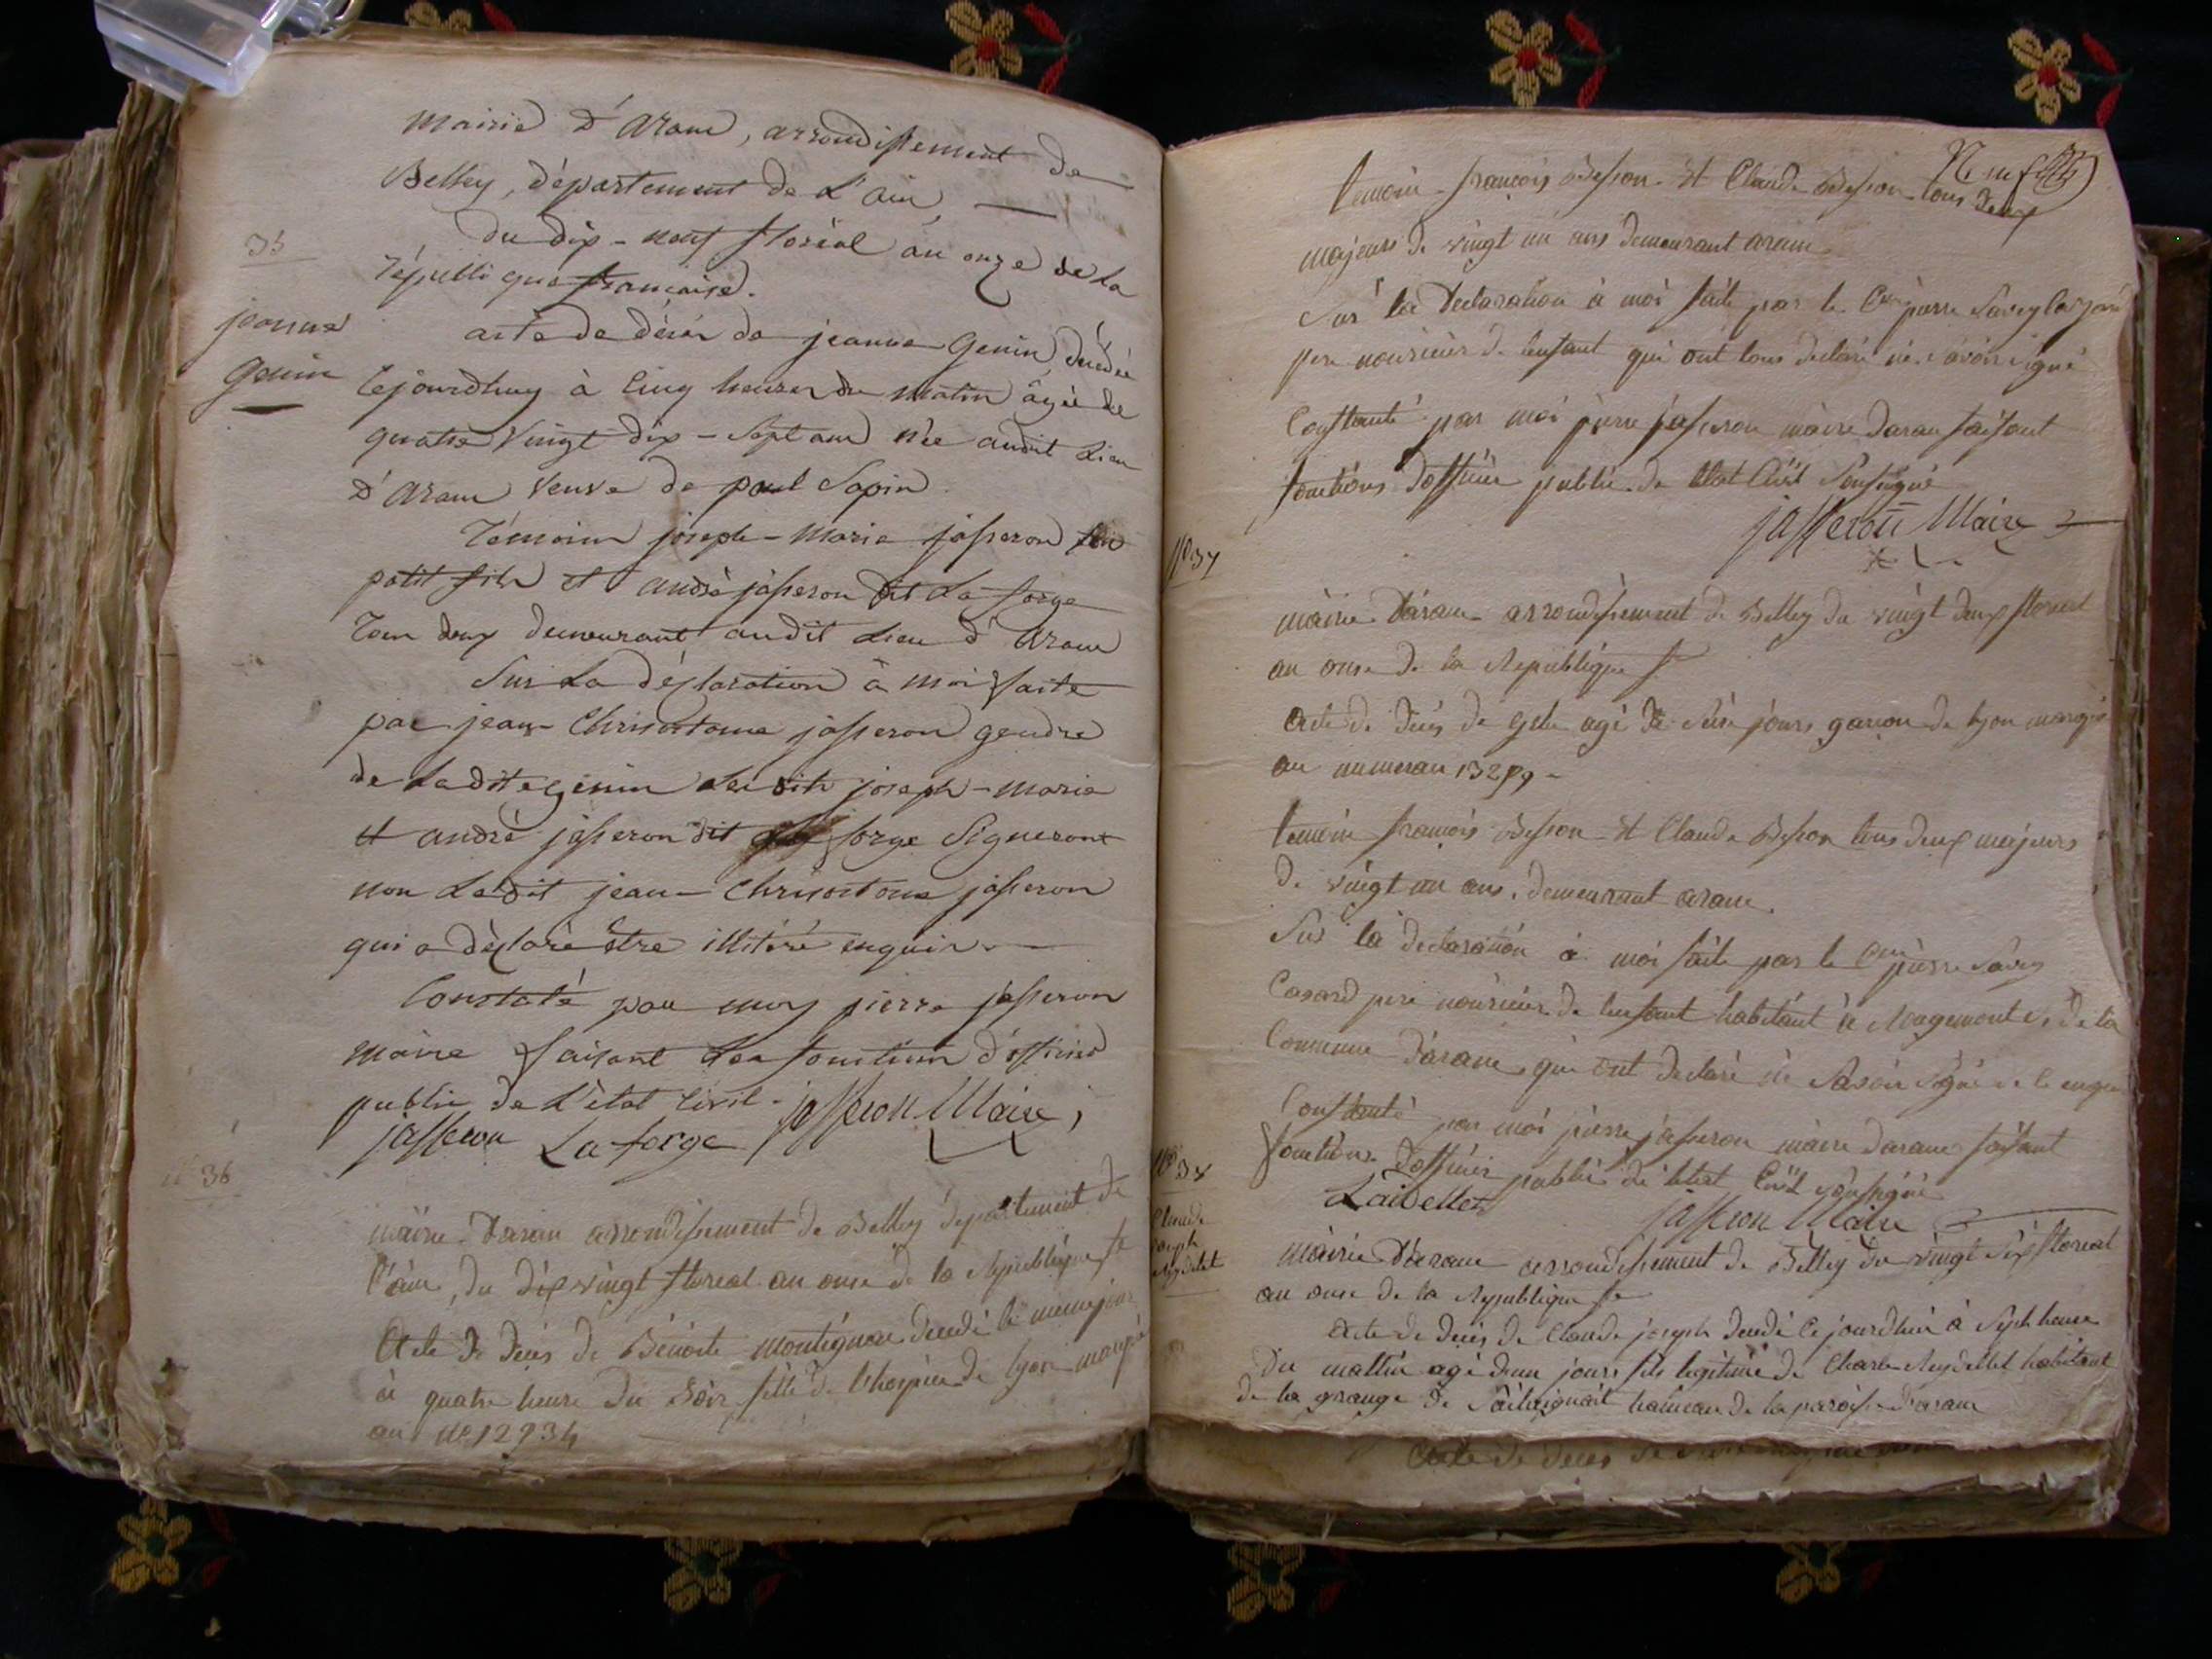 mairie d'aranc, arrondissement de
Belley, département de L'ain,
du dix-neuf floréal an onze de La
républiqu française.
35
jeanne
Genin
acte de décès de jeanne Genin, décédée
Cejourdhuy à Cinq heures du matin âgée de
quatre Vingt dix-Sept ans née audit Lieu
d'aranc Veuve de paul Sapin
Témoins joseph-marie josseron son
petit fils et andré josseron dit La forge
Tous deux demeurant audit Lieu d'aranc
Sur La déclaration à moi faite
par jean-Chrisostome josseron gendre
de Ladite genin Lesdits joseph-marie
et andré josseron dit La forge Signeront
non Ledit jean-Chrisostome josseron
qui a déclaré être illitéré enquis.
Constaté par moy pierre josseron
maire faisant Les fonctions d'officier
public de L'état Civil. josseron Maire
josseron La forge
N° 36
mairie daranc arrondissement de Belley département de
l'ain, du dix vingt floreal an onse de la Republique fse
Acte de décés de Benoite montégnon decedé le meme jour
à quatre heure du soir fille de lhospice de lyon
au N° 12934
temoin françois Besson et Claude Besson tous deux
majeurs de vingt un ans demeurant aranc
Sur la declaration à moi faite par le Cen pierre Savey
pere nouricier de lenfant qui ont tous declaré ne savoir signé
Constanté par moi pierre josseron maire daranc faisant
fonctions dofficier public de letat Civil Soussigné
josseron Maire
N° 37
mairie daranc arrondissement de Belley du vingt deux floreal
an onse de la Republique f
Acte de décés de agé de seise jours garcon de lyon
au numerau 13289
temoin françois Besson et Claude Besson tous deux majeurs
de vingt un ans, demeurant aranc.
Sur la declaration à moi faite par le Cen pierre Savey
pere nouricier de lenfant habitant à Mogemont de la
Commune d'aranc, qui ont declaré ne Savoir signé de le enquis
Constanté par moi pierre josseron maire daranc faisant
fonctions dofficier public de letat Civil soussigné
josseron Maire
N° 38
Claude
joseph
mairie daranc arrondissement de Belley du vingt six floreal
an onse de la Republique fse
acte de decés de Claude joseph decedé Ce jourdhui à Sept heure
du mattin agé dun jours fils legitime de Charle habitant
de la grange de hameau de la paroisse d'aranc
Acte de deces de